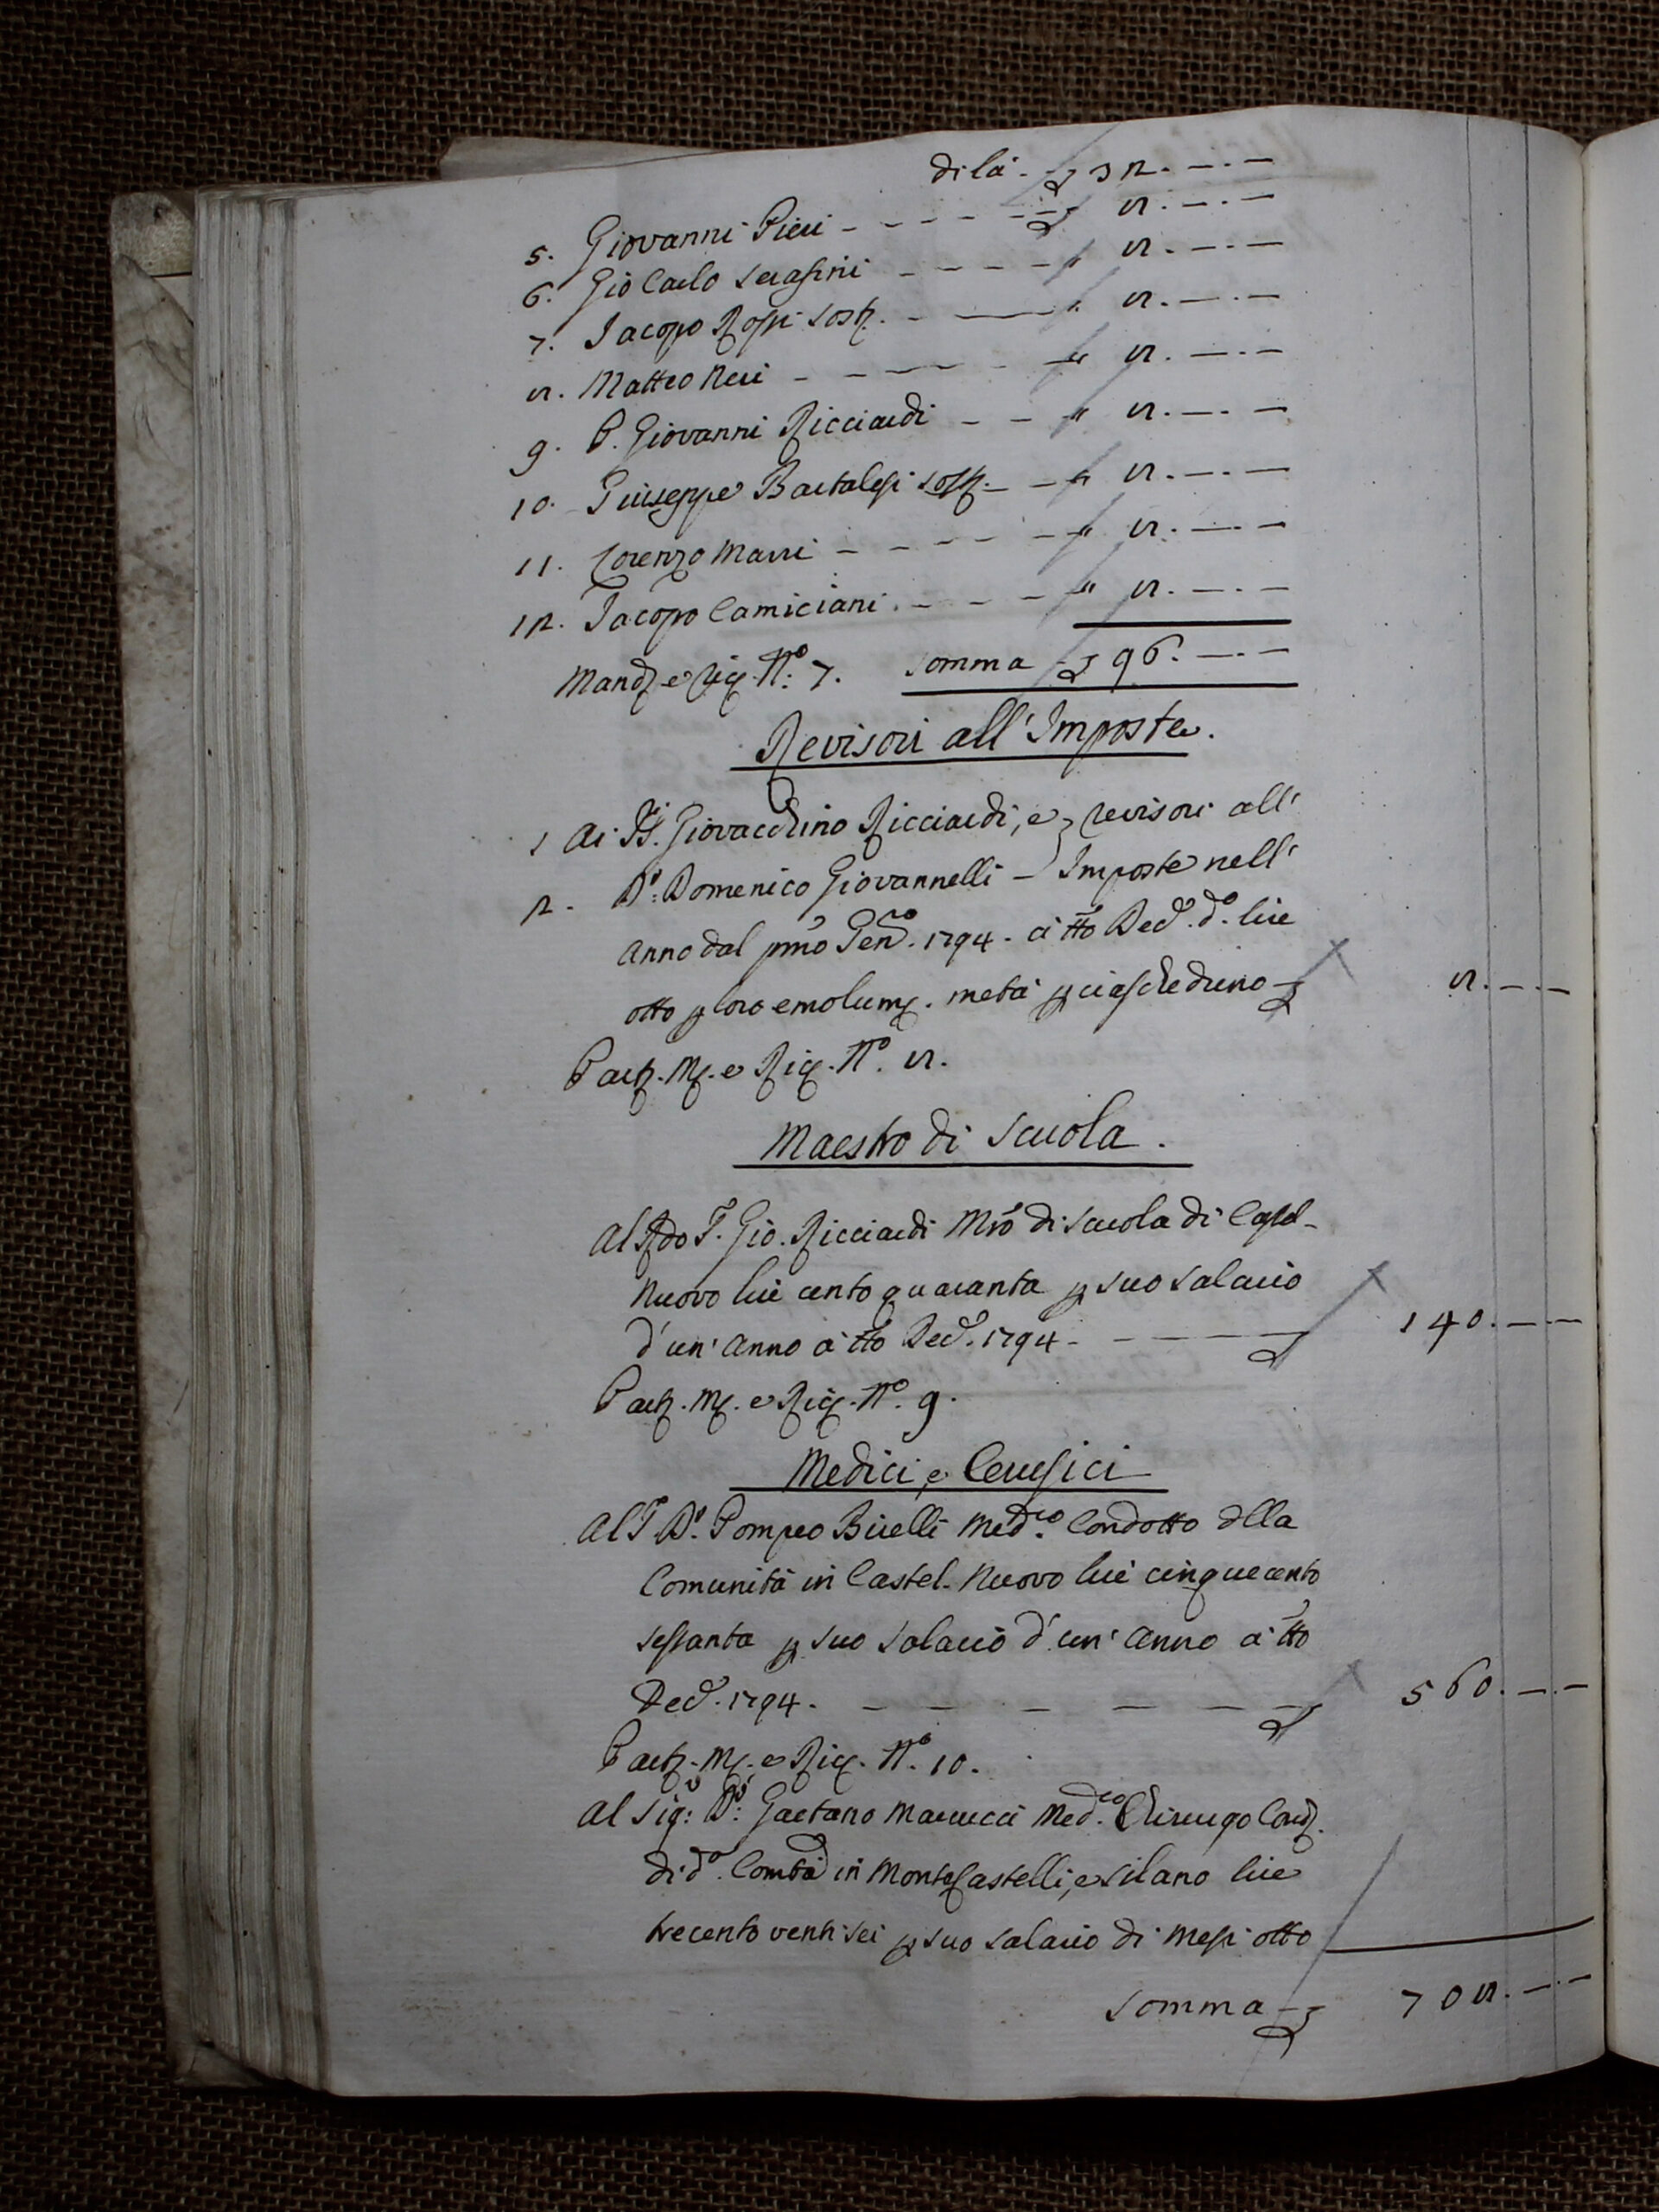 di là - £ 32. —.—
5. Giovanni Pieri - - - - - £ 8. —.—
6. Gio Carlo Serafini - - - - " 8. —.—
7. Jacopo Rossi sost. - — " 8. —.—
8. Matteo Neri - - - - - " 8. —.—
9. P. Giovanni Ricciardi - - " 8. —.—
10. Giuseppe Bartalesi sost. - - " 8. —.—
11. Lorenzo Marri - - - - - " 8. —.—
12. Jacopo Camiciani. - - - " 8. —.—
Mand. e Ric. N.° 7. Somma - £ 96. —.—
Revisori all'Imposte.
1 Ai SS. Giovacchino Ricciardi, e } revisori all'
2. D.r Domenico Giovannelli - } Imposte nell'
anno dal pmo Gen.ro 1794. a tto Dec.e d.o lire
otto p loro emolum. metà p ciascheduno - £ 8. —.—
Part. M. e Ric. N.° 8.
Maestro di Scuola.
Al Rdo S. Gio. Ricciardi Mro di Scuola di Castel-
Nuovo lire cento quaranta p suo salario
d'un' anno a tto Dec.e 1794 - - - - £ 140. —.—
Part. M. e Ric. N.° 9.
Medici, e Cerusici
Al S. D.r Pompeo Birelli Med.co Condotto dlla
Comunità in Castel-Nuovo lire cinquecento
sessanta p suo salario d'un' anno a tto
Dec.e 1794. - - - - - - £ 560. —.—
Part. M. e Ric. N.° 10.
Al Sig.r D.r Gaetano Marrucci Med.co Chirurgo Cond.
di d.a Comtà in MonteCastelli, e Silano lire
trecento ventisei p suo salario di mesi otto
Somma - £ 708. —.—